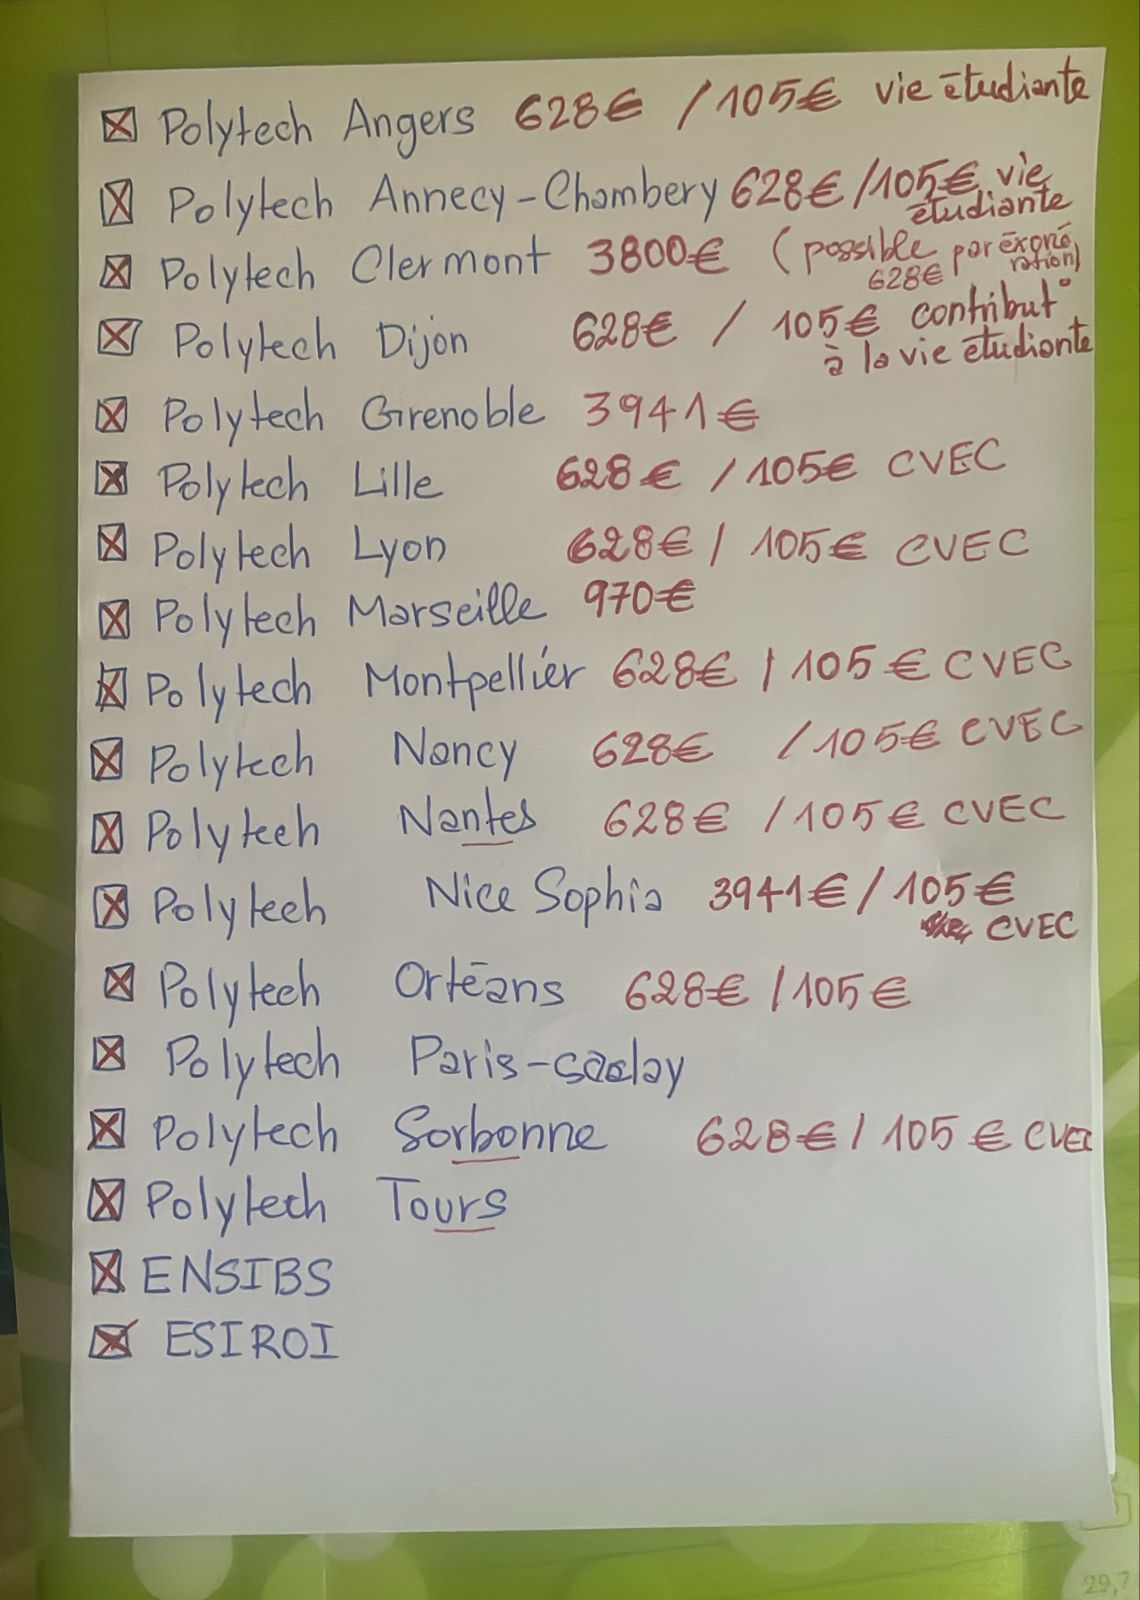 Polytech Angers 628€ / 105€ vie étudiante
Polytech Annecy-Chambery 628€ / 105€ vie étudiante
Polytech Clermont 3800€ (possible par éxonération) 628€
Polytech Dijon 628€ / 105€ contribut° à la vie étudiante
Polytech Grenoble 3941€
Polytech Lille 628€ / 105€ CVEC
Polytech Lyon 628€ / 105€ CVEC
Polytech Marseille 970€
Polytech Montpellier 628€ / 105€ CVEC
Polytech Nancy 628€ / 105€ CVEC
Polytech Nantes 628€ / 105€ CVEC
Polytech Nice Sophia 3941€ / 105€
CVEC
Polytech Orléans 628€ / 105€
Polytech Paris-saclay
Polytech Sorbonne 628€ / 105€ CVEC
Polytech Tours
ENSIBS
ESIROI
29,7